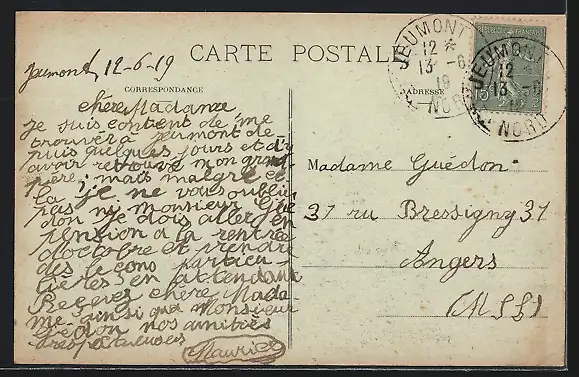 CARTE POSTALE
CORRESPONDANCE
ADRESSE
JEUMONT
12 *
13 -6
19
NORD
JEUMONT
12
13 -6
NORD
REPUBLIQUE FRANCAISE
15
Jeumont, 12-6-19
chère Madame
Je suis content de me
trouver à Jeumont de-
puis quelques jours et d'y
avoir retrouvé mon grand
père; mais malgré ce
la je ne vous oublie
pas ni Monsieur Gué
don je dois aller en
pension à la rentrée
d'octobre et prendre
des leçons particu-
lières en attendant
Recevez chère Mada-
me ainsi que Monsieur
Guédon nos amitiés
respectueuses
Maurice
Madame Guédon
31 ru Bressigny 31
Angers